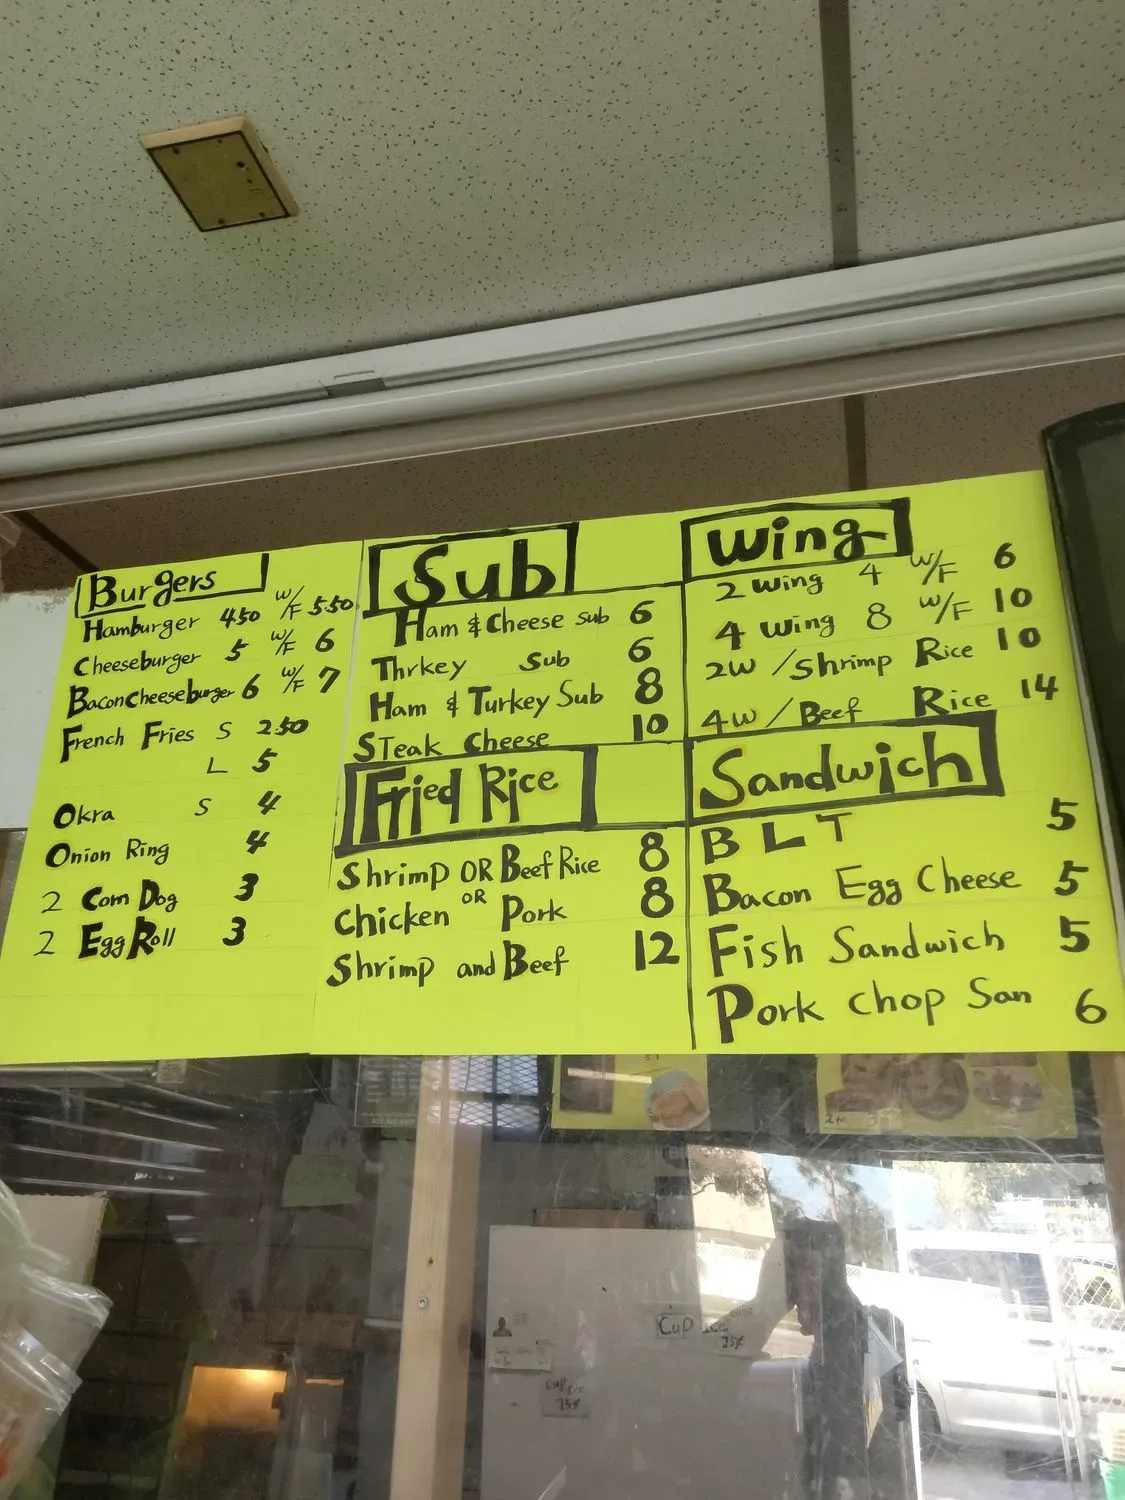 Burgers
Hamburger 4.50 W/F 5.50
Cheeseburger 5 W/F 6
Bacon Cheeseburger 6 W/F 7
French Fries S 2.50
L 5
Okra S 4
Onion Ring 4
2 Corn Dog 3
2 Egg Roll 3
Sub
Ham & Cheese Sub 6
Thrkey Sub 6
Ham & Turkey Sub 8
Steak Cheese 10
Fried Rice
Shrimp OR Beef Rice 8
Chicken OR Pork 8
Shrimp and Beef 12
Wing
2 Wing 4 W/F 6
4 Wing 8 W/F 10
2W/Shrimp Rice 10
4W/Beef Rice 14
Sandwich
BLT 5
Bacon Egg Cheese 5
Fish Sandwich 5
Pork Chop San 6
Cup Ice
75¢